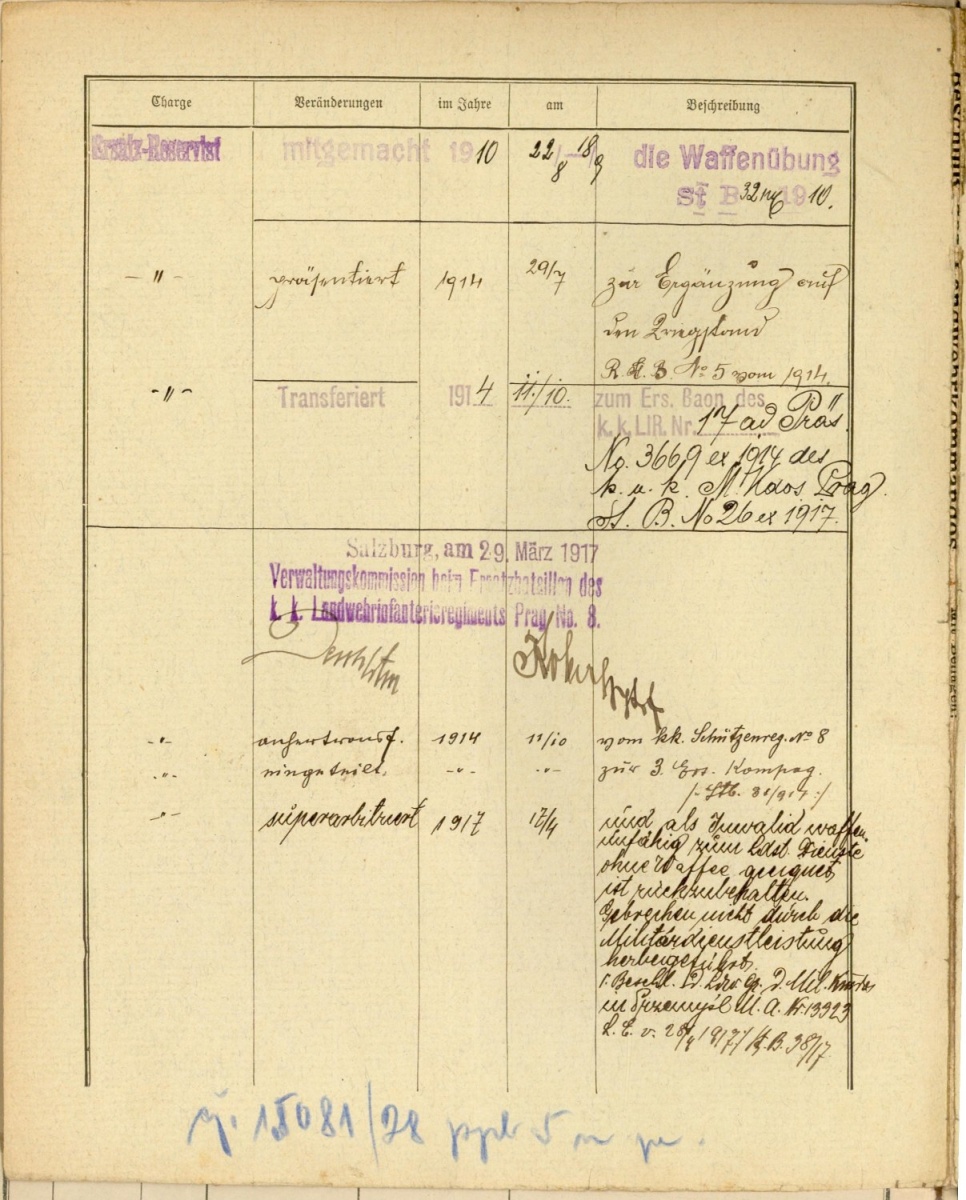 Charge Veränderungen im Jahre am Beschreibung
Ersatz-Reservist mitgemacht 1910 22/8 18/9 die Waffenübung
St B 32 1910.
— " — präsentiert 1914 29/7 zur Ergänzung auf
den Kriegsstand
No 5 vom 1914.
— " — Transferiert 1914 11./10. zum Ers. Baon des
k. k. LIR. Nr. 17 ad Präs.
No. 3669 ex 1914 des
k. u. k. M. Kdos Prag.
St. B. No 26 ex 1917.
Salzburg, am 29. März 1917
Verwaltungskommission beim Ersatzbataillon des
k. k. Landwehrinfanterieregiments Prag No. 8.
- " - anhertransf. 1914 11/10 vom kk. Schützenreg. No 8
- " - eingeteilt. - " - - " - zur 3. Ers. Kompag.
- " - superarbitriert 1917 17/4 und als Invalid waffen-
unfähig zum Ldst. Dienste
ohne Waffe geeignet
ist rückzubehalten.
Gebrechen nicht durch die
Militärdienstleistung
herbeigeführt.
in Przemyśl M. A. Nr. 13923
B. 38/17
15081/28